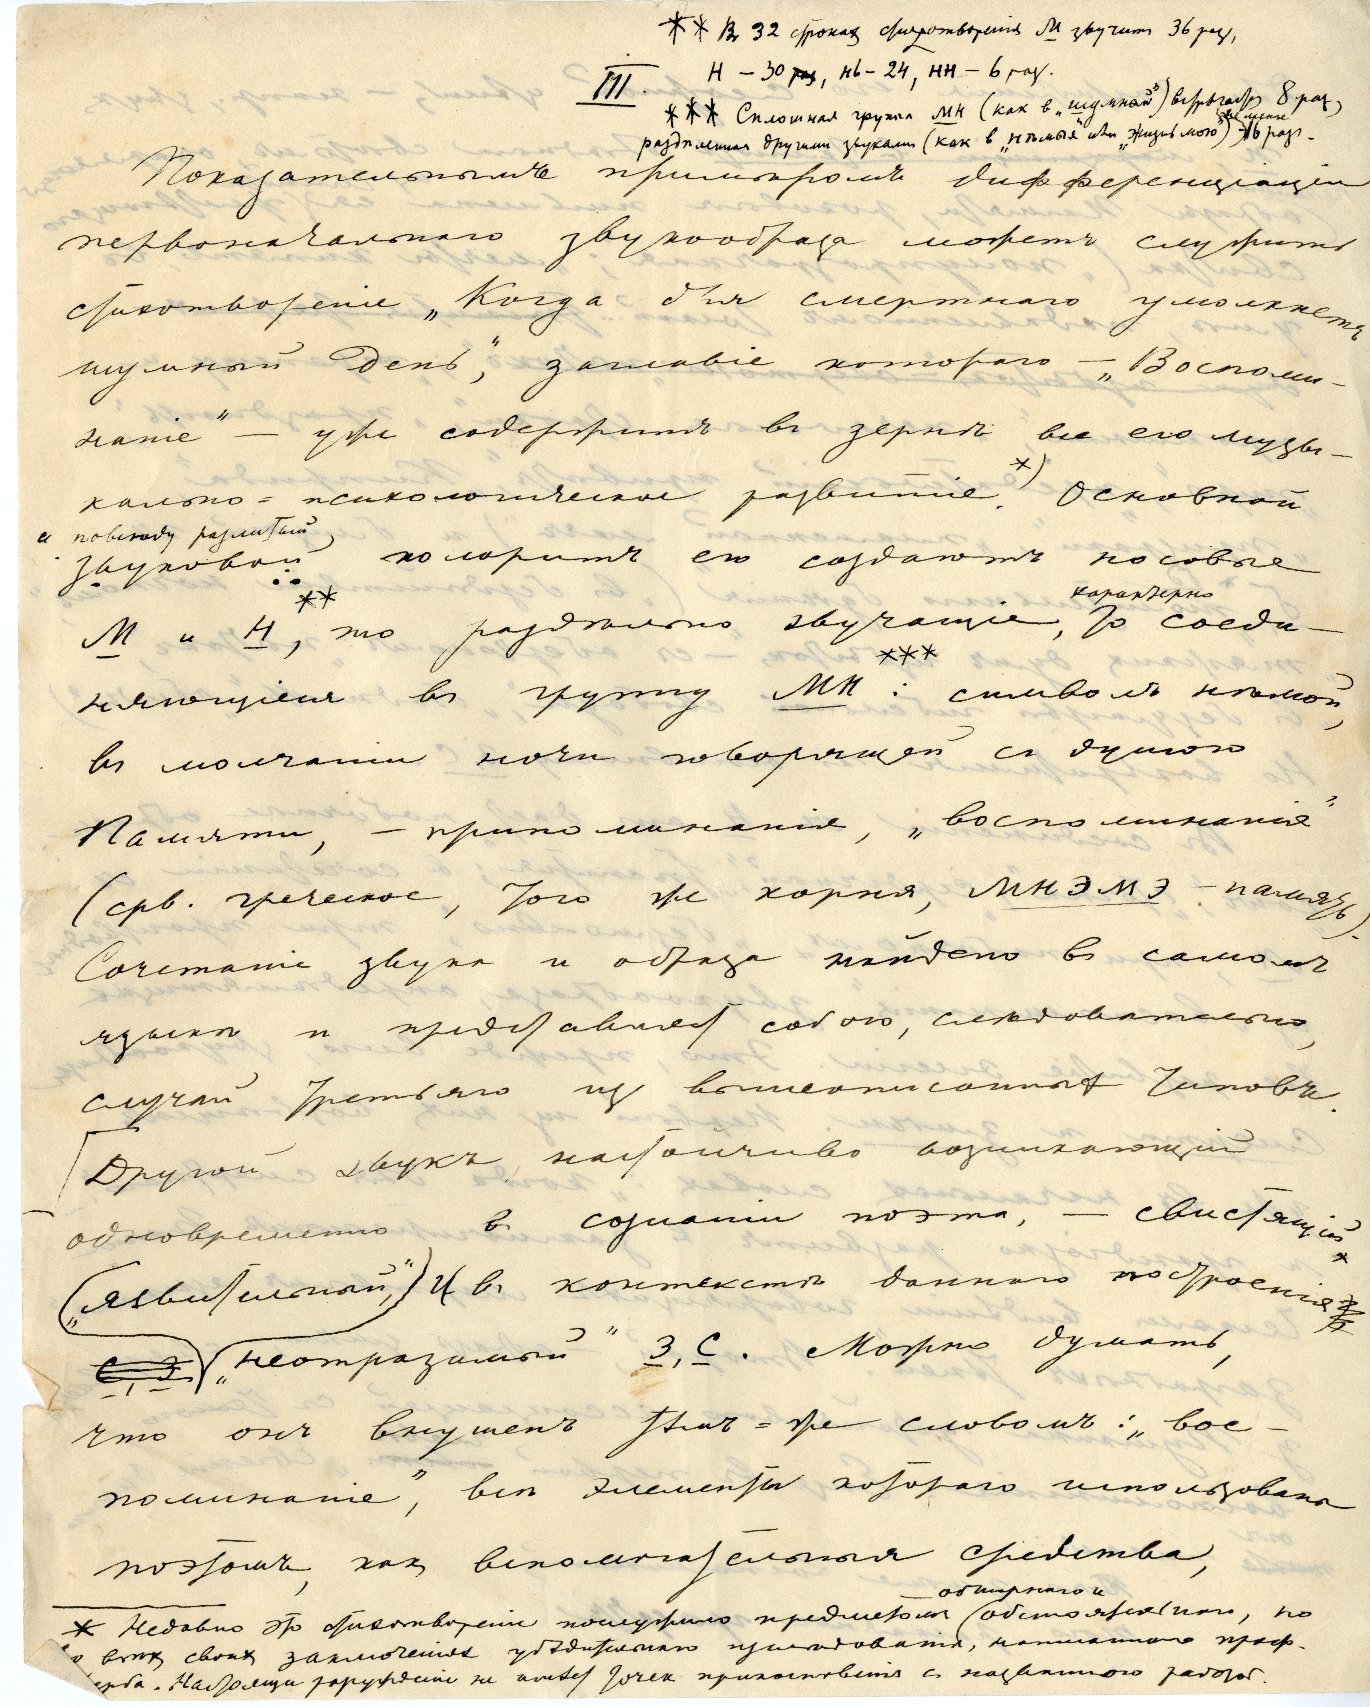 ** Въ 32 строкахъ стихотворенія М звучитъ 36 разъ,
Н – 30 раз, нь – 24, нн – 6 раз.
III.
*** Сплошная группа МН (как в „шумный") встрѣчается 8 раз,
раздѣленная другими звуками (как в „нѣмыя" или „жизнь мою") не менѣе 16 разъ.
Показательнымъ примѣромъ дифференціаціи
первоначальнаго звукообраза можетъ служить
стихотвореніе „Когда для смертнаго умолкнетъ
шумный день", заглавіе котораго – „Воспоми-
наніе" – уже содержитъ въ зернѣ все его музы-
кально-психологическое развитіе.*) Основной
и повсюду разлитый,
звуковой колоритъ его создаютъ носовые
М и Н,** то раздѣльно звучащіе, то характерно соеди-
няющіеся въ группу МН***: символъ нѣмой,
въ молчаніи ночи говорящей съ душою
Памяти, – припоминанія, „воспоминанія"
(срв. греческое, того же корня, МНЭМЭ – память).
Сочетаніе звука и образа найдено въ самомъ
языкѣ и представляетъ собою, слѣдовательно,
случай третьяго изъ вышеописанныхъ типовъ.
Другой звукъ, настойчиво возникающій
одновременно въ сознаніи поэта, – свистящій
(„язвительный",) и въ контекстѣ даннаго построенія
С, З „неотразимый" З, С. Можно думать,
что онъ внушенъ тѣмъ-же словомъ: „вос-
поминаніе", всѣ элементы котораго использованы
поэтомъ, какъ вспомогательныя средства,
* Недавно это стихотвореніе послужило предметомъ обширнаго и обстоятельнаго, но
во всѣхъ своихъ заключеніяхъ убѣдительнаго изслѣдованія, написаннаго проф.
Настоящее разсужденіе не имѣетъ точекъ прикосновенія съ названною работой.